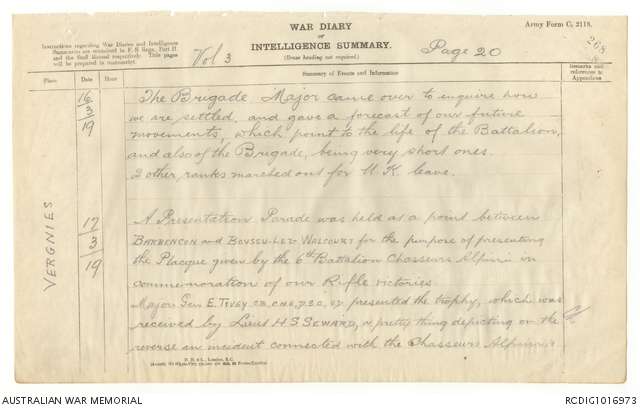 Army Form C. 2118.
WAR DIARY
or
INTELLIGENCE SUMMARY.
(Erase heading not required.)
Instructions regarding War Diaries and Intelligence
Summaries are contained in F. S. Regs., Part II.
and the Staff Manual respectively. Title pages
will be prepared in manuscript.
Vol 3
Page 20
268
Place
Date
Hour
Summary of Events and Information
Remarks and
references to
Appendices
VERGNIES
16
3
19
The Brigade Major came over to enquire how
we are settled, and gave a forecast of our future
movements, which point to the life of the Battalion,
and also of the Brigade, being very short ones.
2 other ranks marched out for U.K. leave.
17
3
19
A Presentation Parade was held at a point between
BARBENCON and BOUSSU-LEZ-WALCOURT for the purpose of presenting
the Placque given by the 6th Battalion Chasseurs Alpins in
commemoration of our Rifle victories
Major Gen E. TIVEY CB, CMG, DSO, VD presented the trophy, which was
received by Lieut H S SEWARD, a pretty thing depicting on the
reverse an incident connected with the Chasseurs Alpins's
AUSTRALIAN WAR MEMORIAL
RCDIG1016973